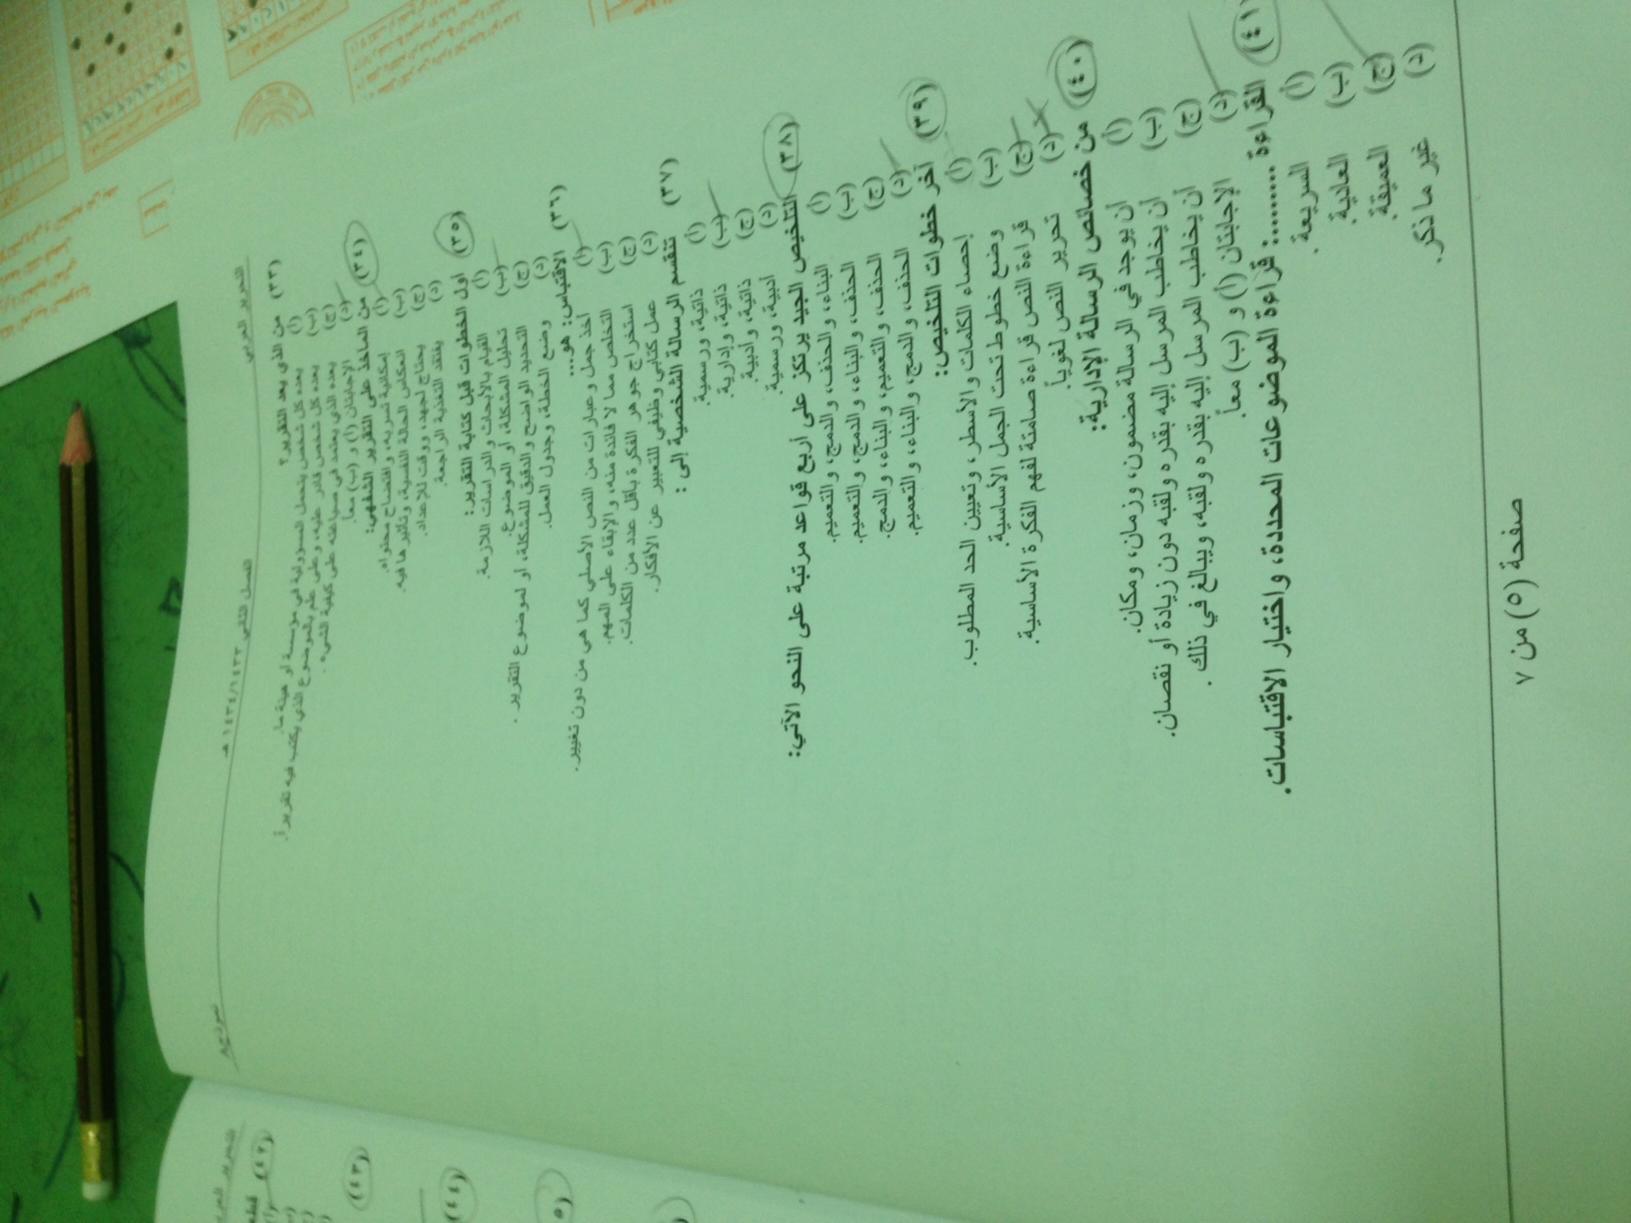 التحرير العربي الفصل الثاني ١٤٣٣/١٤٣٤ هـ نموذج
(٣٣) من الذي يعد التقرير؟
(أ) يعده كل شخص يتحمل المسؤولية في مؤسسة أو هيئة ما.
(ب) يعده كل شخص قادر عليه، وعلى علم بالموضوع الذي يكتب فيه تقريراً.
(ج) يعده الذي يعتمد في صياغته على كيفية الشيء.
(د) الإجابتان (أ) و (ب) معاً.
(٣٤) من المآخذ على التقرير الشفهي:
(أ) إمكانية تسربه، وافتضاح محتواه.
(ب) انعكاس الحالة النفسية، وتأثيرها فيه.
(ج) يحتاج لجهد، ووقت للإعداد.
(د) يفتقد التغذية الراجعة.
(٣٥) أول الخطوات قبل كتابة التقرير:
(أ) القيام بالأبحاث والدراسات اللازمة.
(ب) تحليل المشكلة، أو الموضوع.
(ج) التحديد الواضح والدقيق للمشكلة، أو لموضوع التقرير.
(د) وضع الخطة، وجدول العمل.
(٣٦) الاقتباس: هو....
(أ) أخذ جمل وعبارات من النص الأصلي كما هي من دون تغيير.
(ب) التخلص مما لا فائدة منه، والإبقاء على المهم.
(ج) استخراج جوهر الفكرة بأقل عدد من الكلمات.
(د) عمل كتابي وظيفي للتعبير عن الأفكار.
(٣٧) تنقسم الرسالة الشخصية إلى :
(أ) ذاتية، ورسمية.
(ب) ذاتية، وإدارية.
(ج) ذاتية، وأدبية.
(د) أدبية، ورسمية.
(٣٨) التلخيص الجيد يرتكز على أربع قواعد مرتبة على النحو الآتي:
(أ) البناء، والحذف، والدمج، والتعميم.
(ب) الحذف، والبناء، والدمج، والتعميم.
(ج) الحذف، والتعميم، والبناء، والدمج.
(د) الحذف، والدمج، والبناء، والتعميم.
(٣٩) آخر خطوات التلخيص:
(أ) إحصاء الكلمات والأسطر، وتعيين الحد المطلوب.
(ب) وضع خطوط تحت الجمل الأساسية.
(ج) قراءة النص قراءة صامتة لفهم الفكرة الأساسية.
(د) تحرير النص لغوياً.
(٤٠) من خصائص الرسالة الإدارية:
(أ) أن يوجد في الرسالة مضمون، وزمان، ومكان.
(ب) أن يخاطب المرسل إليه بقدره ولقبه دون زيادة أو نقصان.
(ج) أن يخاطب المرسل إليه بقدره ولقبه، ويبالغ في ذلك .
(د) الإجابتان (أ) و (ب) معاً.
(٤١) القراءة .........: قراءة الموضوعات المحددة، واختيار الاقتباسات.
(أ) السريعة .
(ب) العادية.
(ج) العميقة.
(د) غير ما ذكر.
صفحة (٥) من ٧
(٤٢)
(٤٣)
(٤٤)